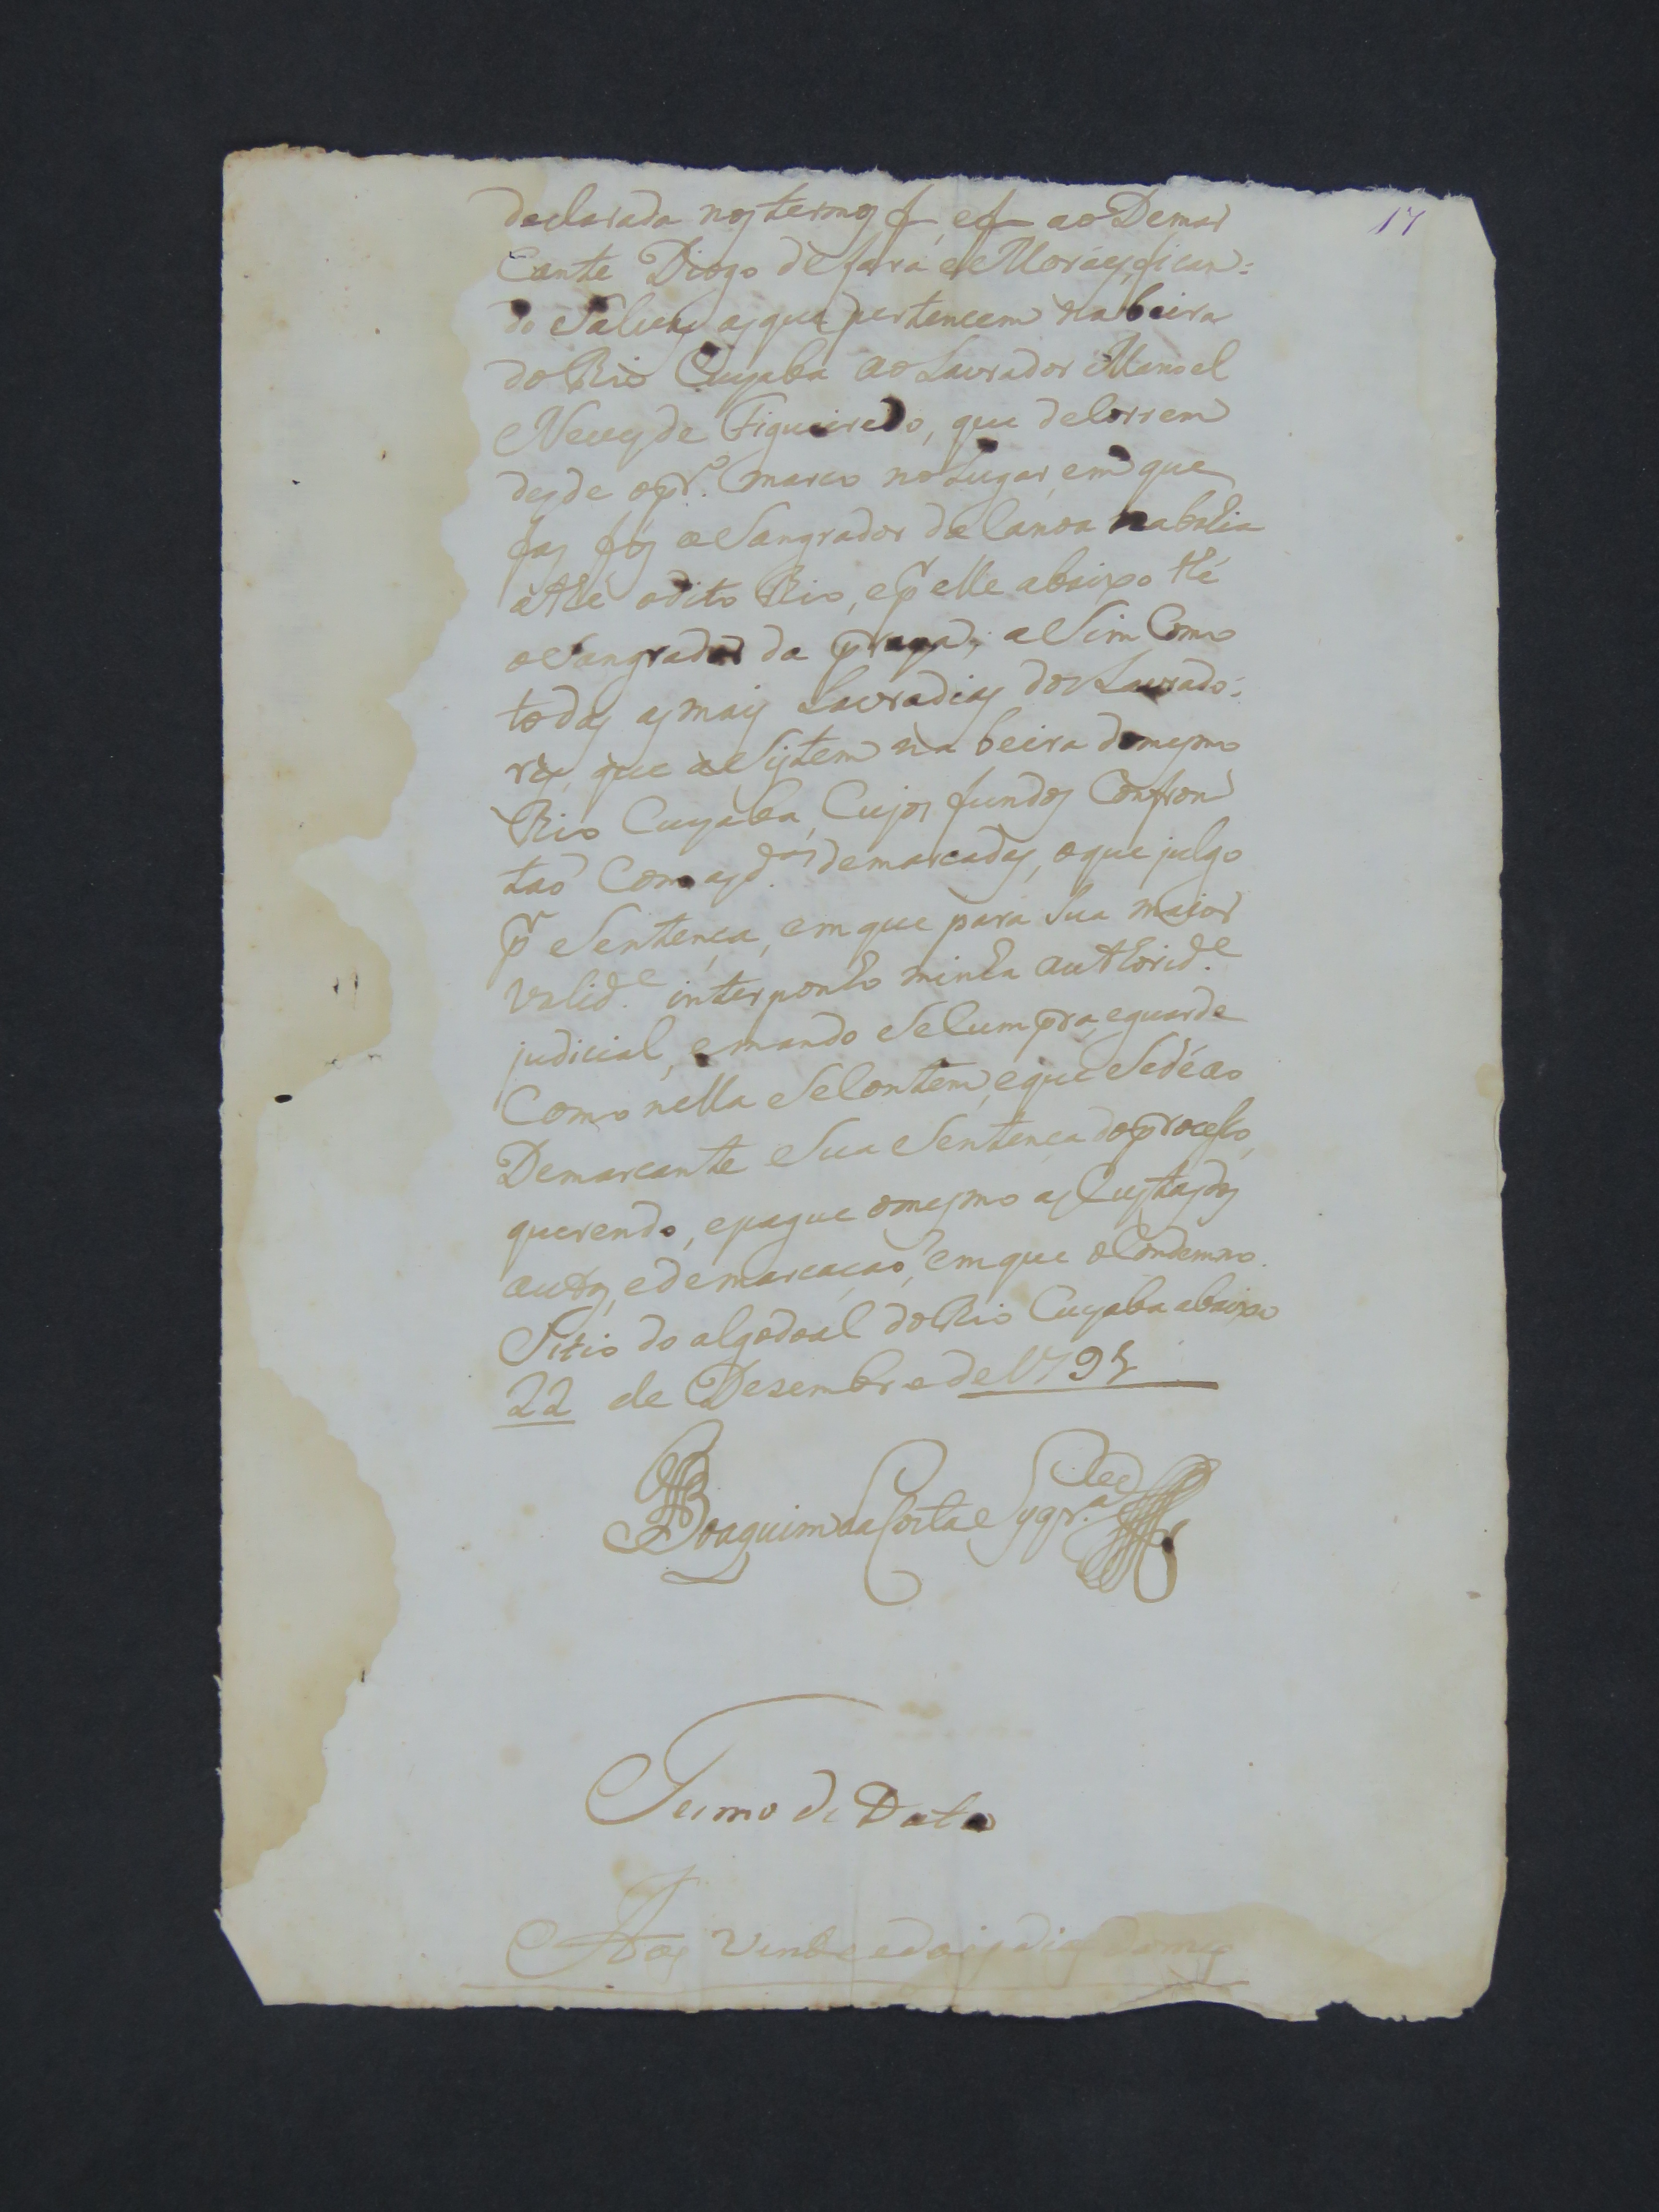 17
declarada nos termos f. e f. ao Demar
Cante Diogo de fara e Moraes, fican:
do Salvas as que pertencem na beira
do Rio Cuyaba ao Lavrador Manoel
Neves de Figueiredo, que deCorrem
desde o pr.º marco no Lugar, em que
fas fós o Sangrador de Canoa na bahia
athé o dito Rio, e pr elle abaixo thé
o Sangrador da praya; aSim Como
todas as mais Lavradias dos Lavrado:
res, que aSistem na beira do mesmo
Rio Cuyaba, Cujos fundos Confron
taõ Com as d.as demarcadas, o que julgo
pr Sentença, em que para Sua maior
valid.e interponho minha authorid.e
judicial, e mando Se Cumpra, e guarde
Como nella Se Contem, e que Se dé ao
Demarcante Sua Sentença do proceso,
querendo, e pague o mesmo as Custas dos
autos, e demarcaçaõ, em que o Condemno.
Sitio do algodoal do Rio Cuyaba abaixo
22 de Desembro de 1795
Joaquim da Costa Syqr.a
Termo de Data
Aos vinte e dois dias do mes